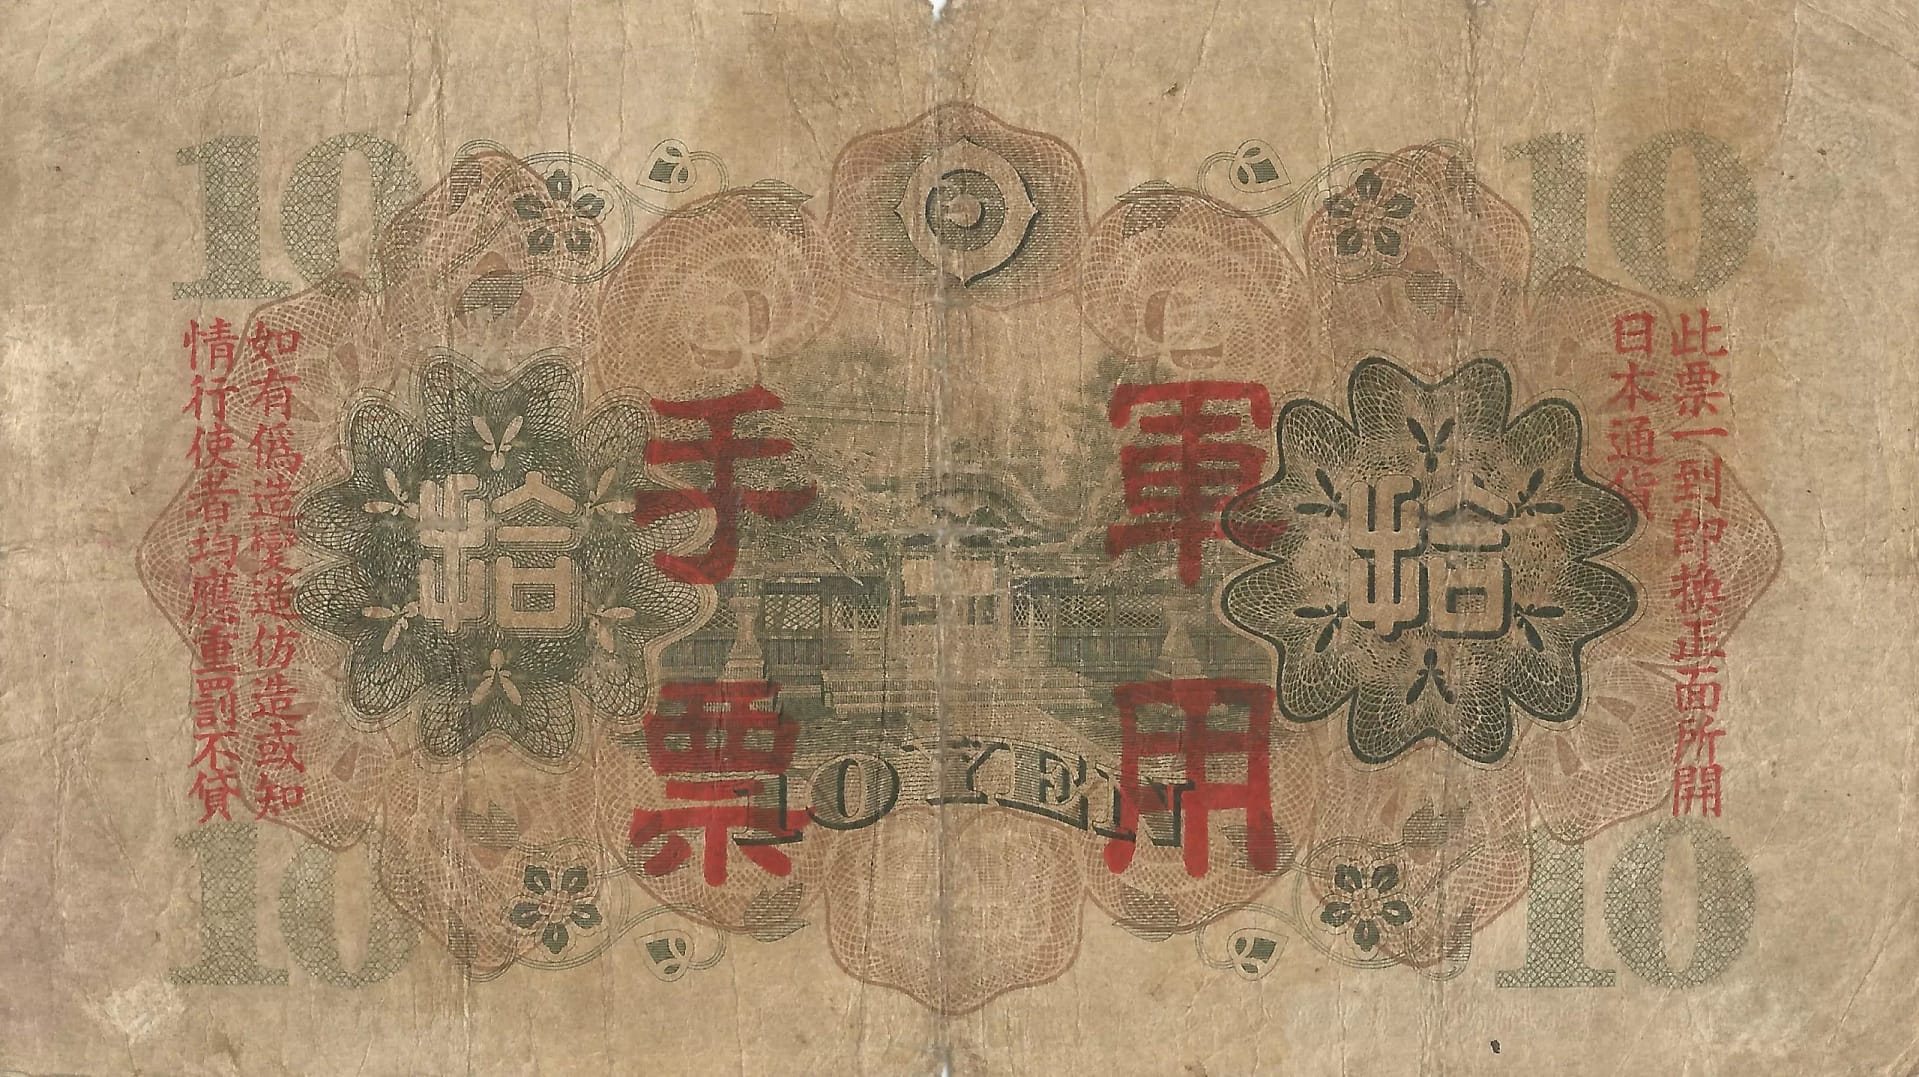 10
10
此票一到即換正面所開
日本通貨
軍用
手票
拾
拾
如有僞造變造仿造或知
情行使者均應重罰不貸
10 YEN
10
10